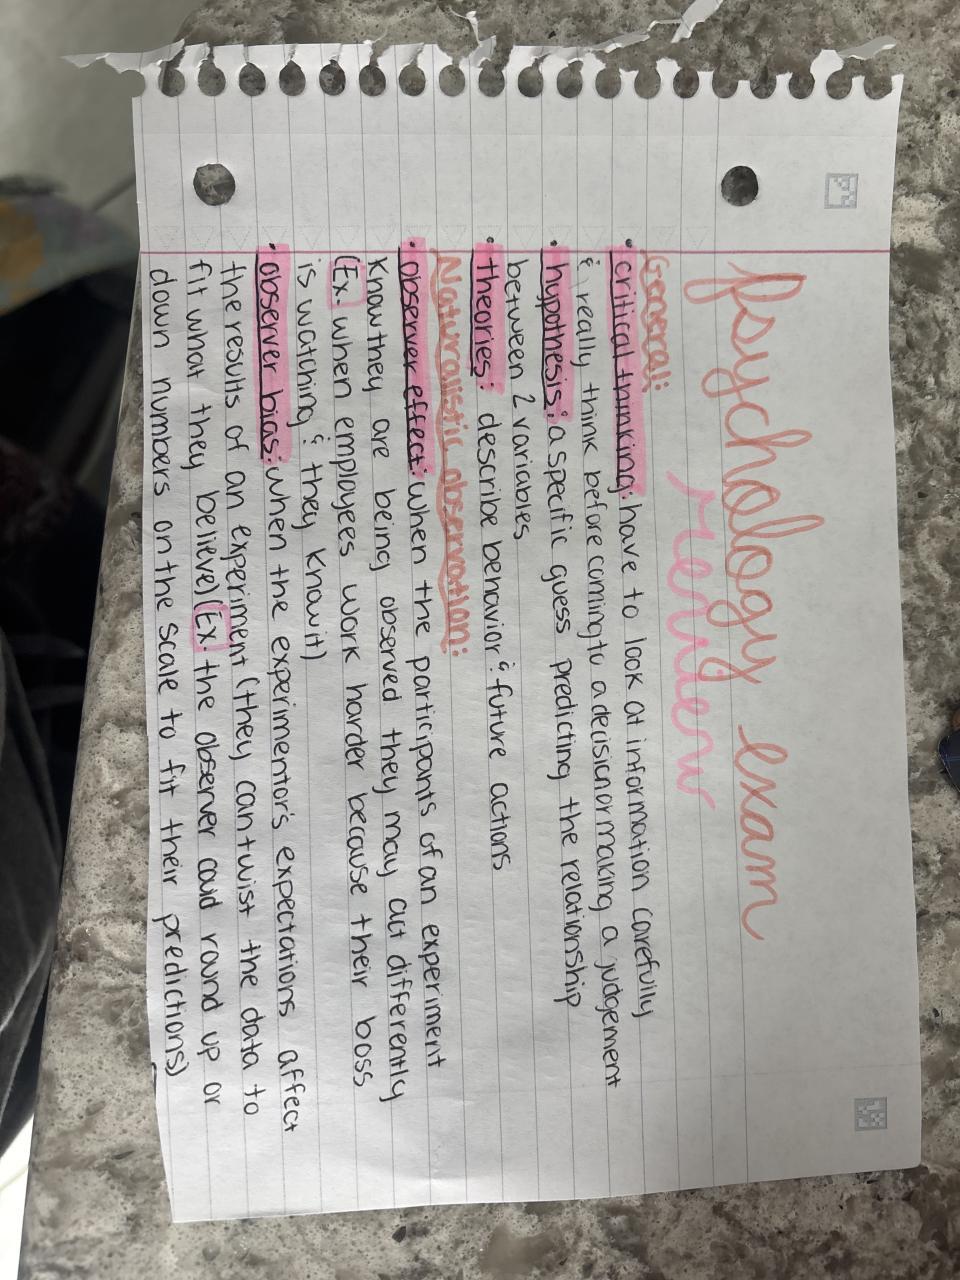 Psychology exam
review
General:
• critical thinking: have to look at information carefully
& really think before coming to a decision or making a judgement
• hypothesis: a specific guess predicting the relationship
between 2 variables
• theories: describe behavior & future actions
Naturalistic observation:
• observer effect: when the participants of an experiment
know they are being observed they may act differently
(Ex. when employees work harder because their boss
is watching & they know it)
• observer bias: when the experimentor's expectations affect
the results of an experiment (they can twist the data to
fit what they believe) (Ex. the observer could round up or
down numbers on the scale to fit their predictions)